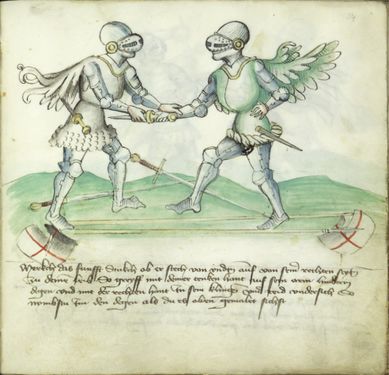 Merckh das funfft stuckh ab er stech von undn auf von seinr rechten seyt
zu deine leib So greyff mit deiner tenken hant auf sein arm hindern
degen und mit der rechten hant in sein klingen und reid undersich So
nymbstu Im den degen als du es oben gemalet sichst